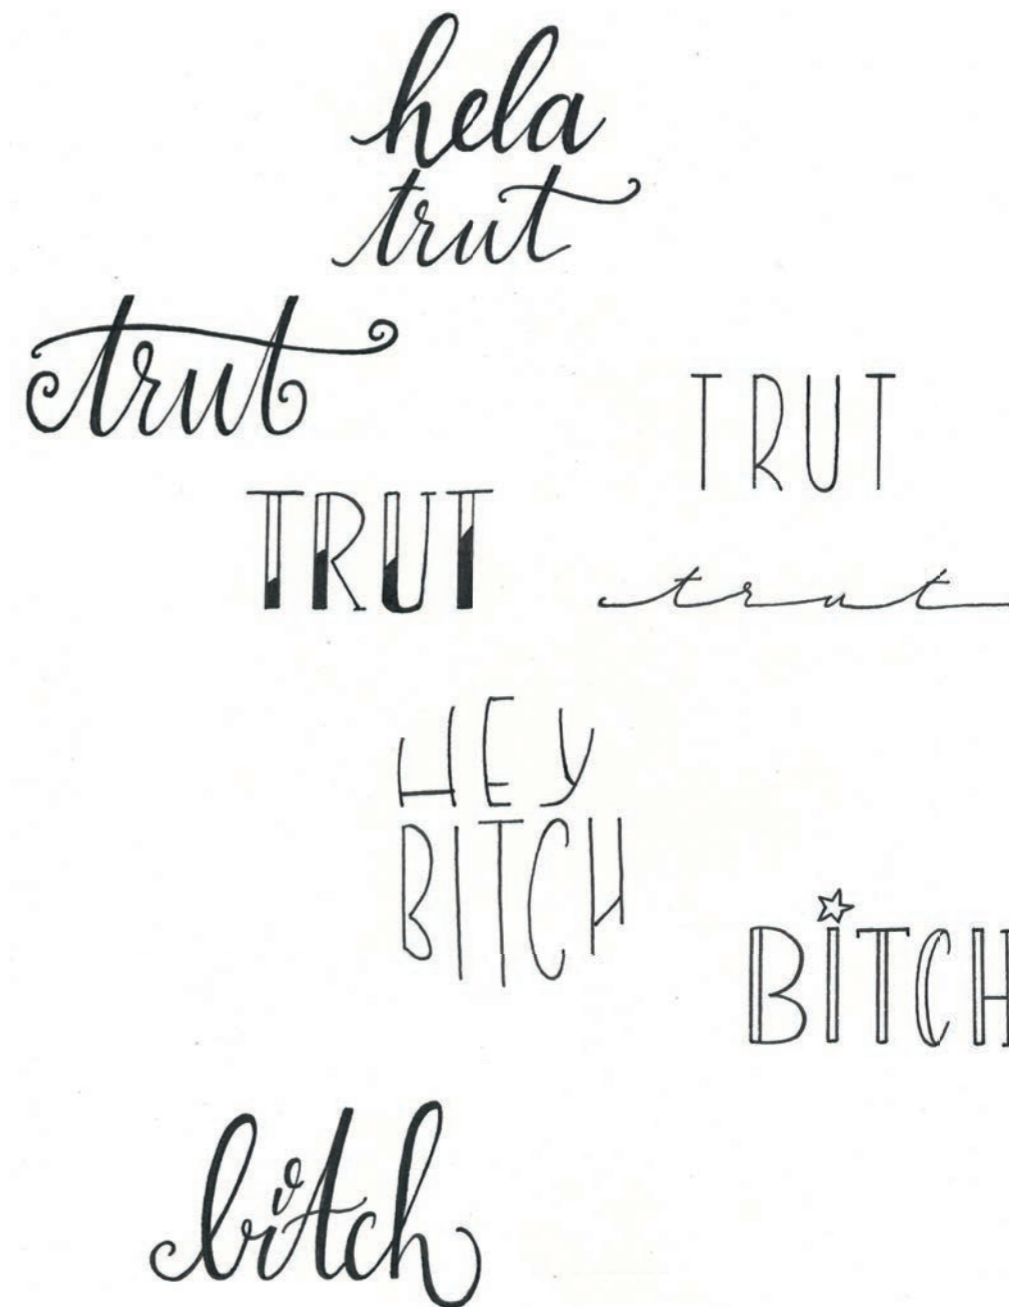 hela
trut
trut
TRUT
TRUT
trut
HEY
BITCH
BITCH
bitch